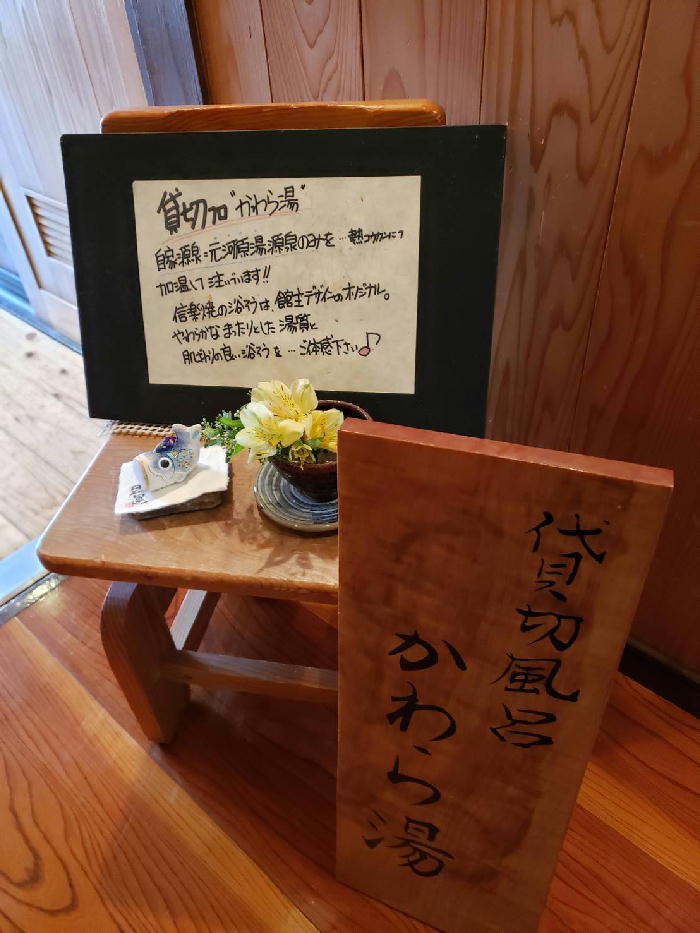 貸切フロ "かわら湯"
自家源泉:元河原湯源泉のみを…熱コウカンにて
加温して注いでいます!!
信楽焼の浴そうは、館主デザインのオリジナル。
やわらかなまったりとした湯質と
肌ざわりの良い浴そうを…ご体感下さい♪
貸切風呂
かわら湯